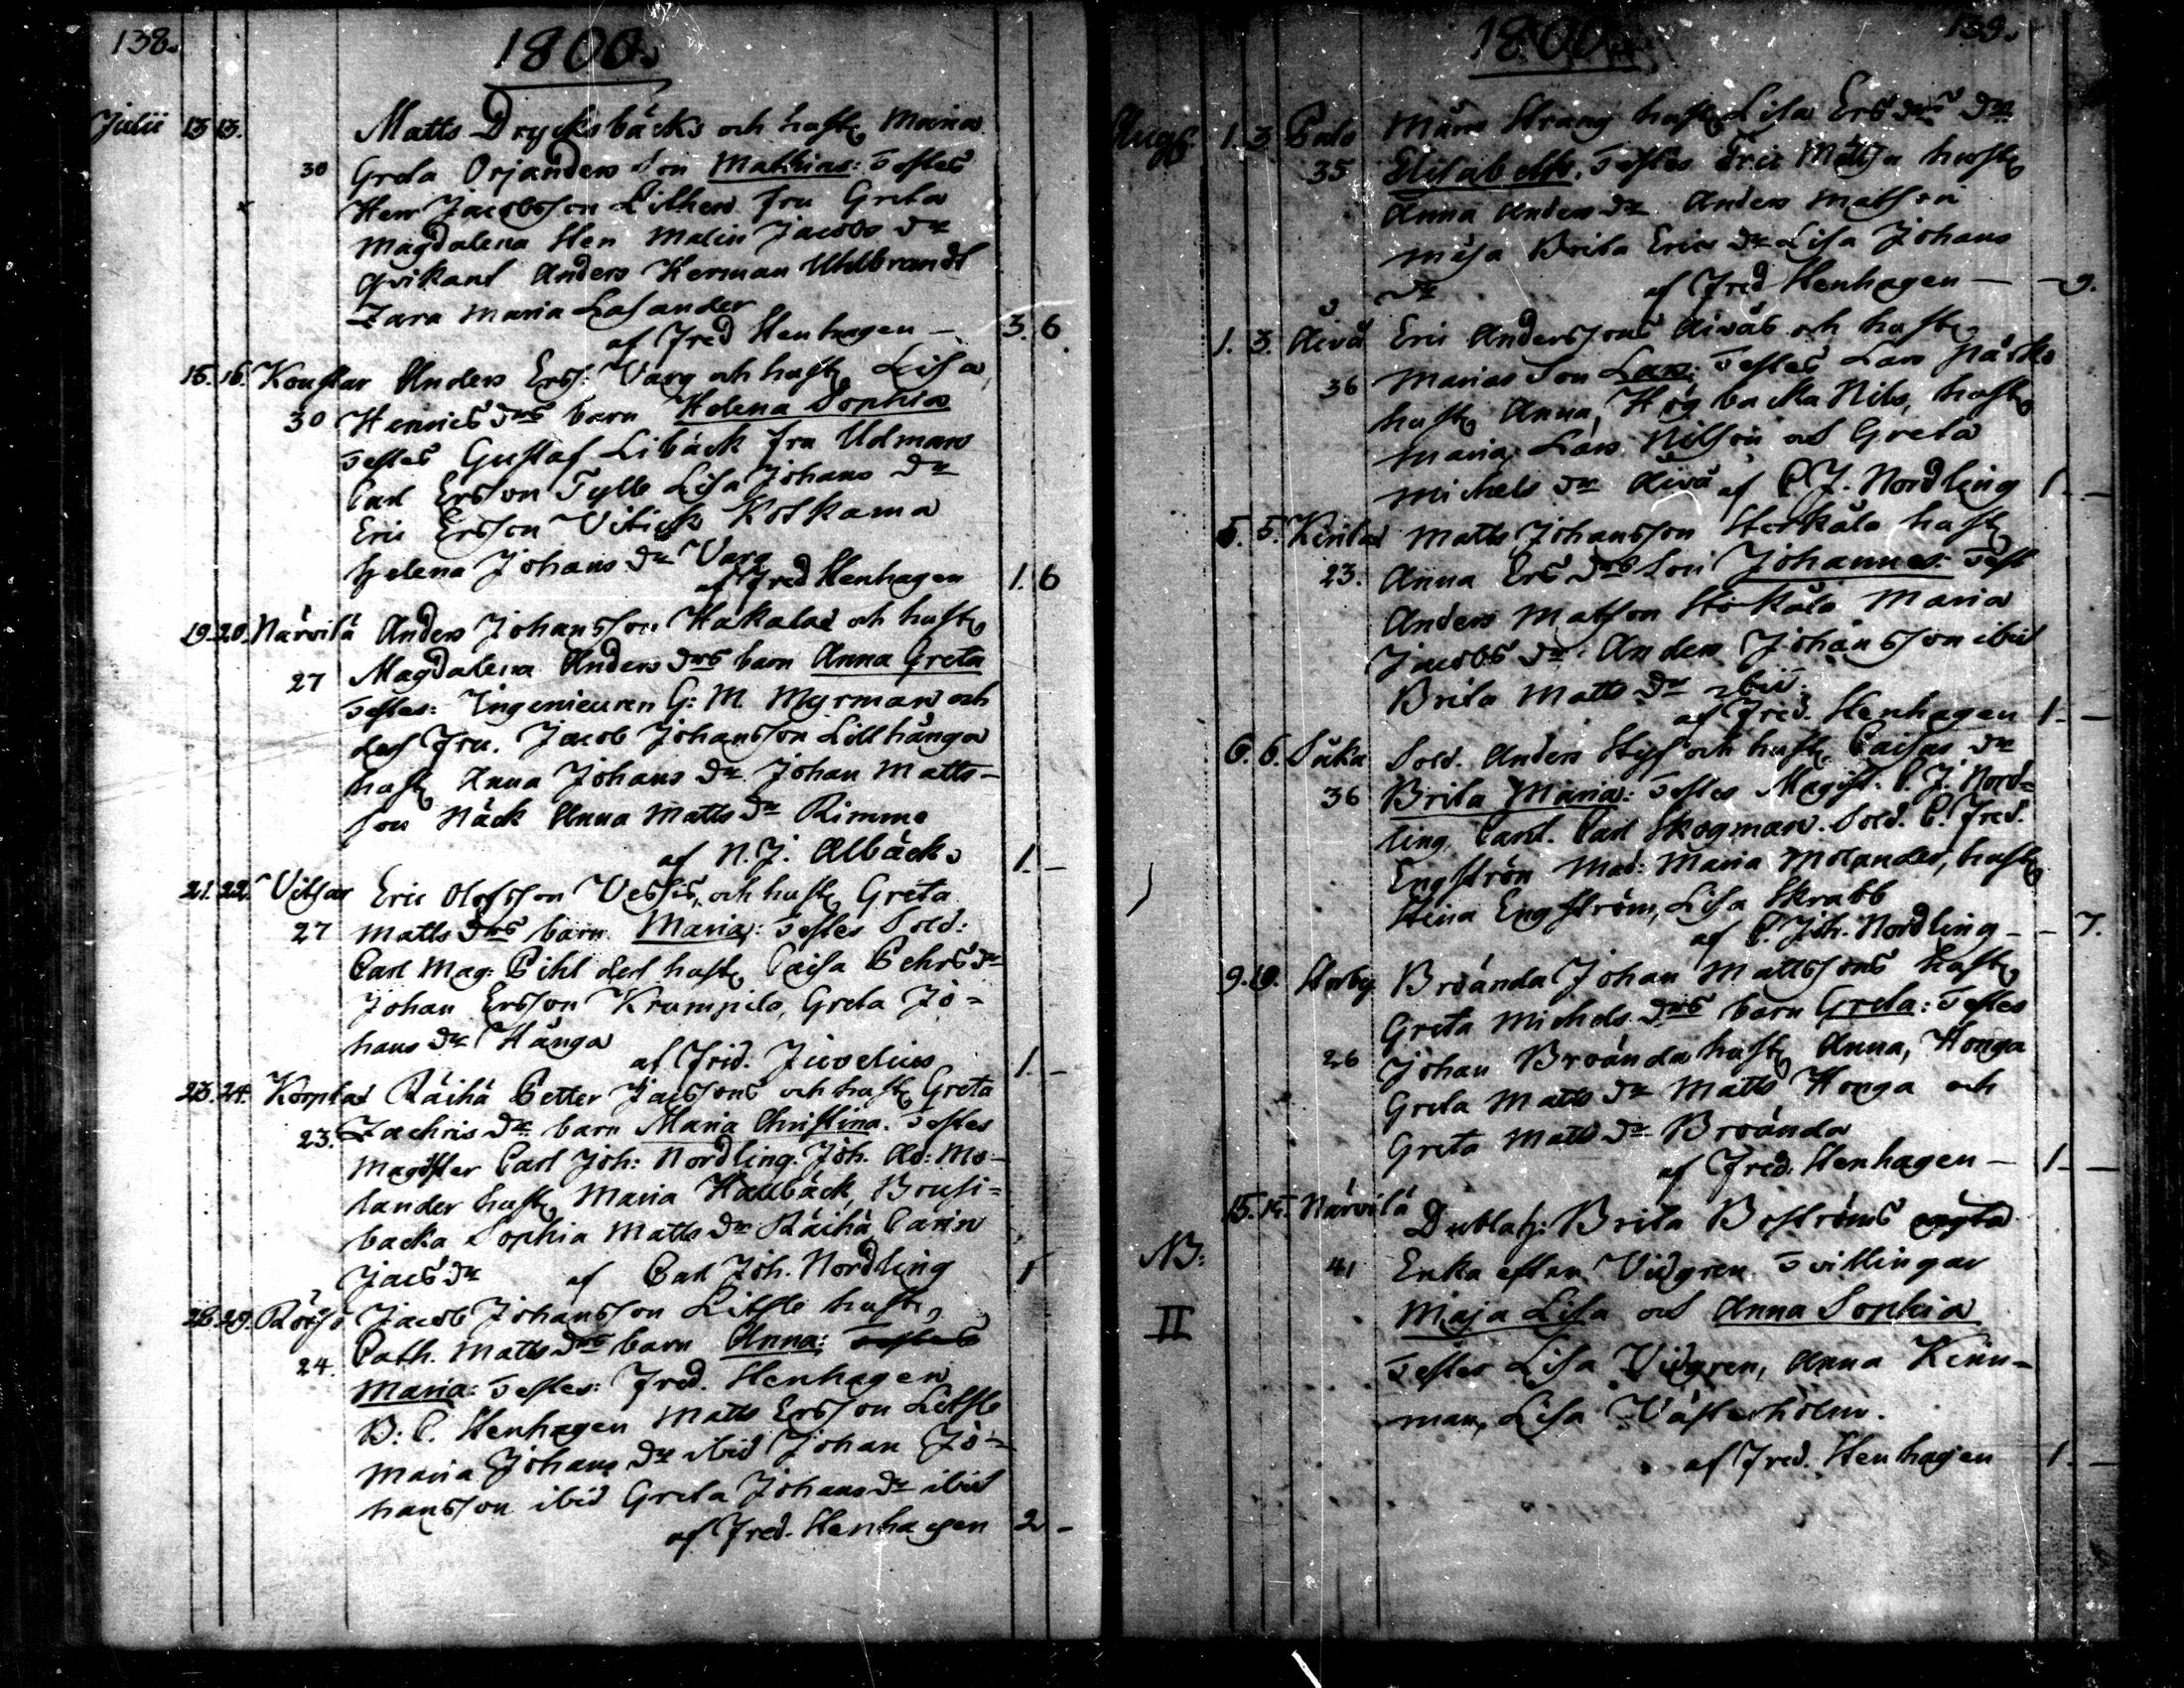 138.
1800.
Julii 13 13. Matts Drycksbäcks och hust. Maria
30 Greta Orjanders son Mathias: Testes
Herr Jacobsson Lithen fru Greta
Magdalena Sten Malin Jacobs dr
Anders Herman Uhlbrandt
Zara Maria Lasander
af Fred Stenhagen — 3. 6.
15. 16. Koustar Anders Erss: Varg och hust. Lisa
30 Henrics drs barn Helena Sophia
Testes Gustaf Libäck fru Udman
Carl Ersson Tylle Lisa Johans dr
Eric Ersson Vitick Koskama
Helena Johans dr Varg
af Fred Stenhagen 1. 6
19. 20. Närvilä Anders Johansson Hakalas och hust.
27 Magdalena Anders drs barn Anna Greta
Testes: Ingenieuren G: M. Myrman och
dess fru. Jacob Johansson Lillhånga
hust. Anna Johans dr Johan Matts-
son Näck Anna Matts dr Rimme
af N. J. Albäck. 1. –
21. 22. Vitsar Eric Olofsson Vessis, och hust. Greta
27 Matts drs barn Maria: Testes Sold:
Carl Mag: Pihl dess hust. Caisa Pehrs dr
Johan Ersson Krumpila, Greta Jo=
hans dr Hånga
af Frid. Juvelius 1. –
23. 24. Korplax Räihä Petter Jacssons och hust. Greta
23. Zachris dr barn Maria Christina. Testes
Magister Carl Joh: Nordling. Joh. Ad: Mo-
lander hust. Maria Hallbäck, Brusi=
backa Sophia Matts dr Räihä, Carin
Jacs dr af Carl Joh. Nordling 1
28. 29. Rödsö Jacob Johansson Litsle hust.
24. Cath. Matts drs barn Anna: Testes
Maria: Testes: Fred. Stenhagen
B: C. Stenhagen Matts Ersson Litsle
Maria Johans dr ibid Johan Jo=
hansson ibid Greta Johans dr ibid
af Fred. Stenhagen 2 –
1800.
139.
Aug. 1. 3. Palo Måns Strang hust. Lisa Ers drs dr
35 Elisabeth. Testes Eric Matts hust.
Anna Anders dr Anders Matsson
Brita Erics dr Lisa Johans
dr af Fred Stenhagen — – 9.
1. 3. Äivä Eric Anderssons Äiväs och hust.
36 Marias Son Lars: Testes Lars
hust. Anna, Högbacka Nils, hust.
Maria, Lars Nilsson och Greta
Michels dr Äivä af C. J. Nordling 1. –
5. 5. Matts Johansson Storkåla hust.
23. Anna Ers drs Son Johannes: Test
Anders Matsson Storkåla Maria
Jacobs dr Anders Johansson ibid
Brita Matts dr ibid.
af Fred. Stenhagen 1. –
6. 6. Såka Sold. Anders Styf och hust. Caisas dr
36 Brita Maria: Testes Magist. C. J. Nord=
ling, Cant. Carl Skogman. Sold. C. Fred.
Engström Mad: Maria Molander, hust.
Stina Engström, Lisa Skrabb
af C. Joh. Nordling – – 7.
9. 10. Storby Broända Johan Mattssons hust.
Greta Michels drs barn Greta: Testes
26 Johan Broända hust. Anna, Honga
Greta Matts dr Matts Honga och
Greta Matts dr Broända
af Fred. Stenhagen — 1. –
15. 15. Närvilä Brita Boströms
NB: 41 Enka efter Vidgren Tvillingar
II Maja Lisa och Anna Sophia
Testes Lisa Vidgren, Anna Kinn-
man, Lisa Västerholm.
af Fred. Stenhagen 1. –